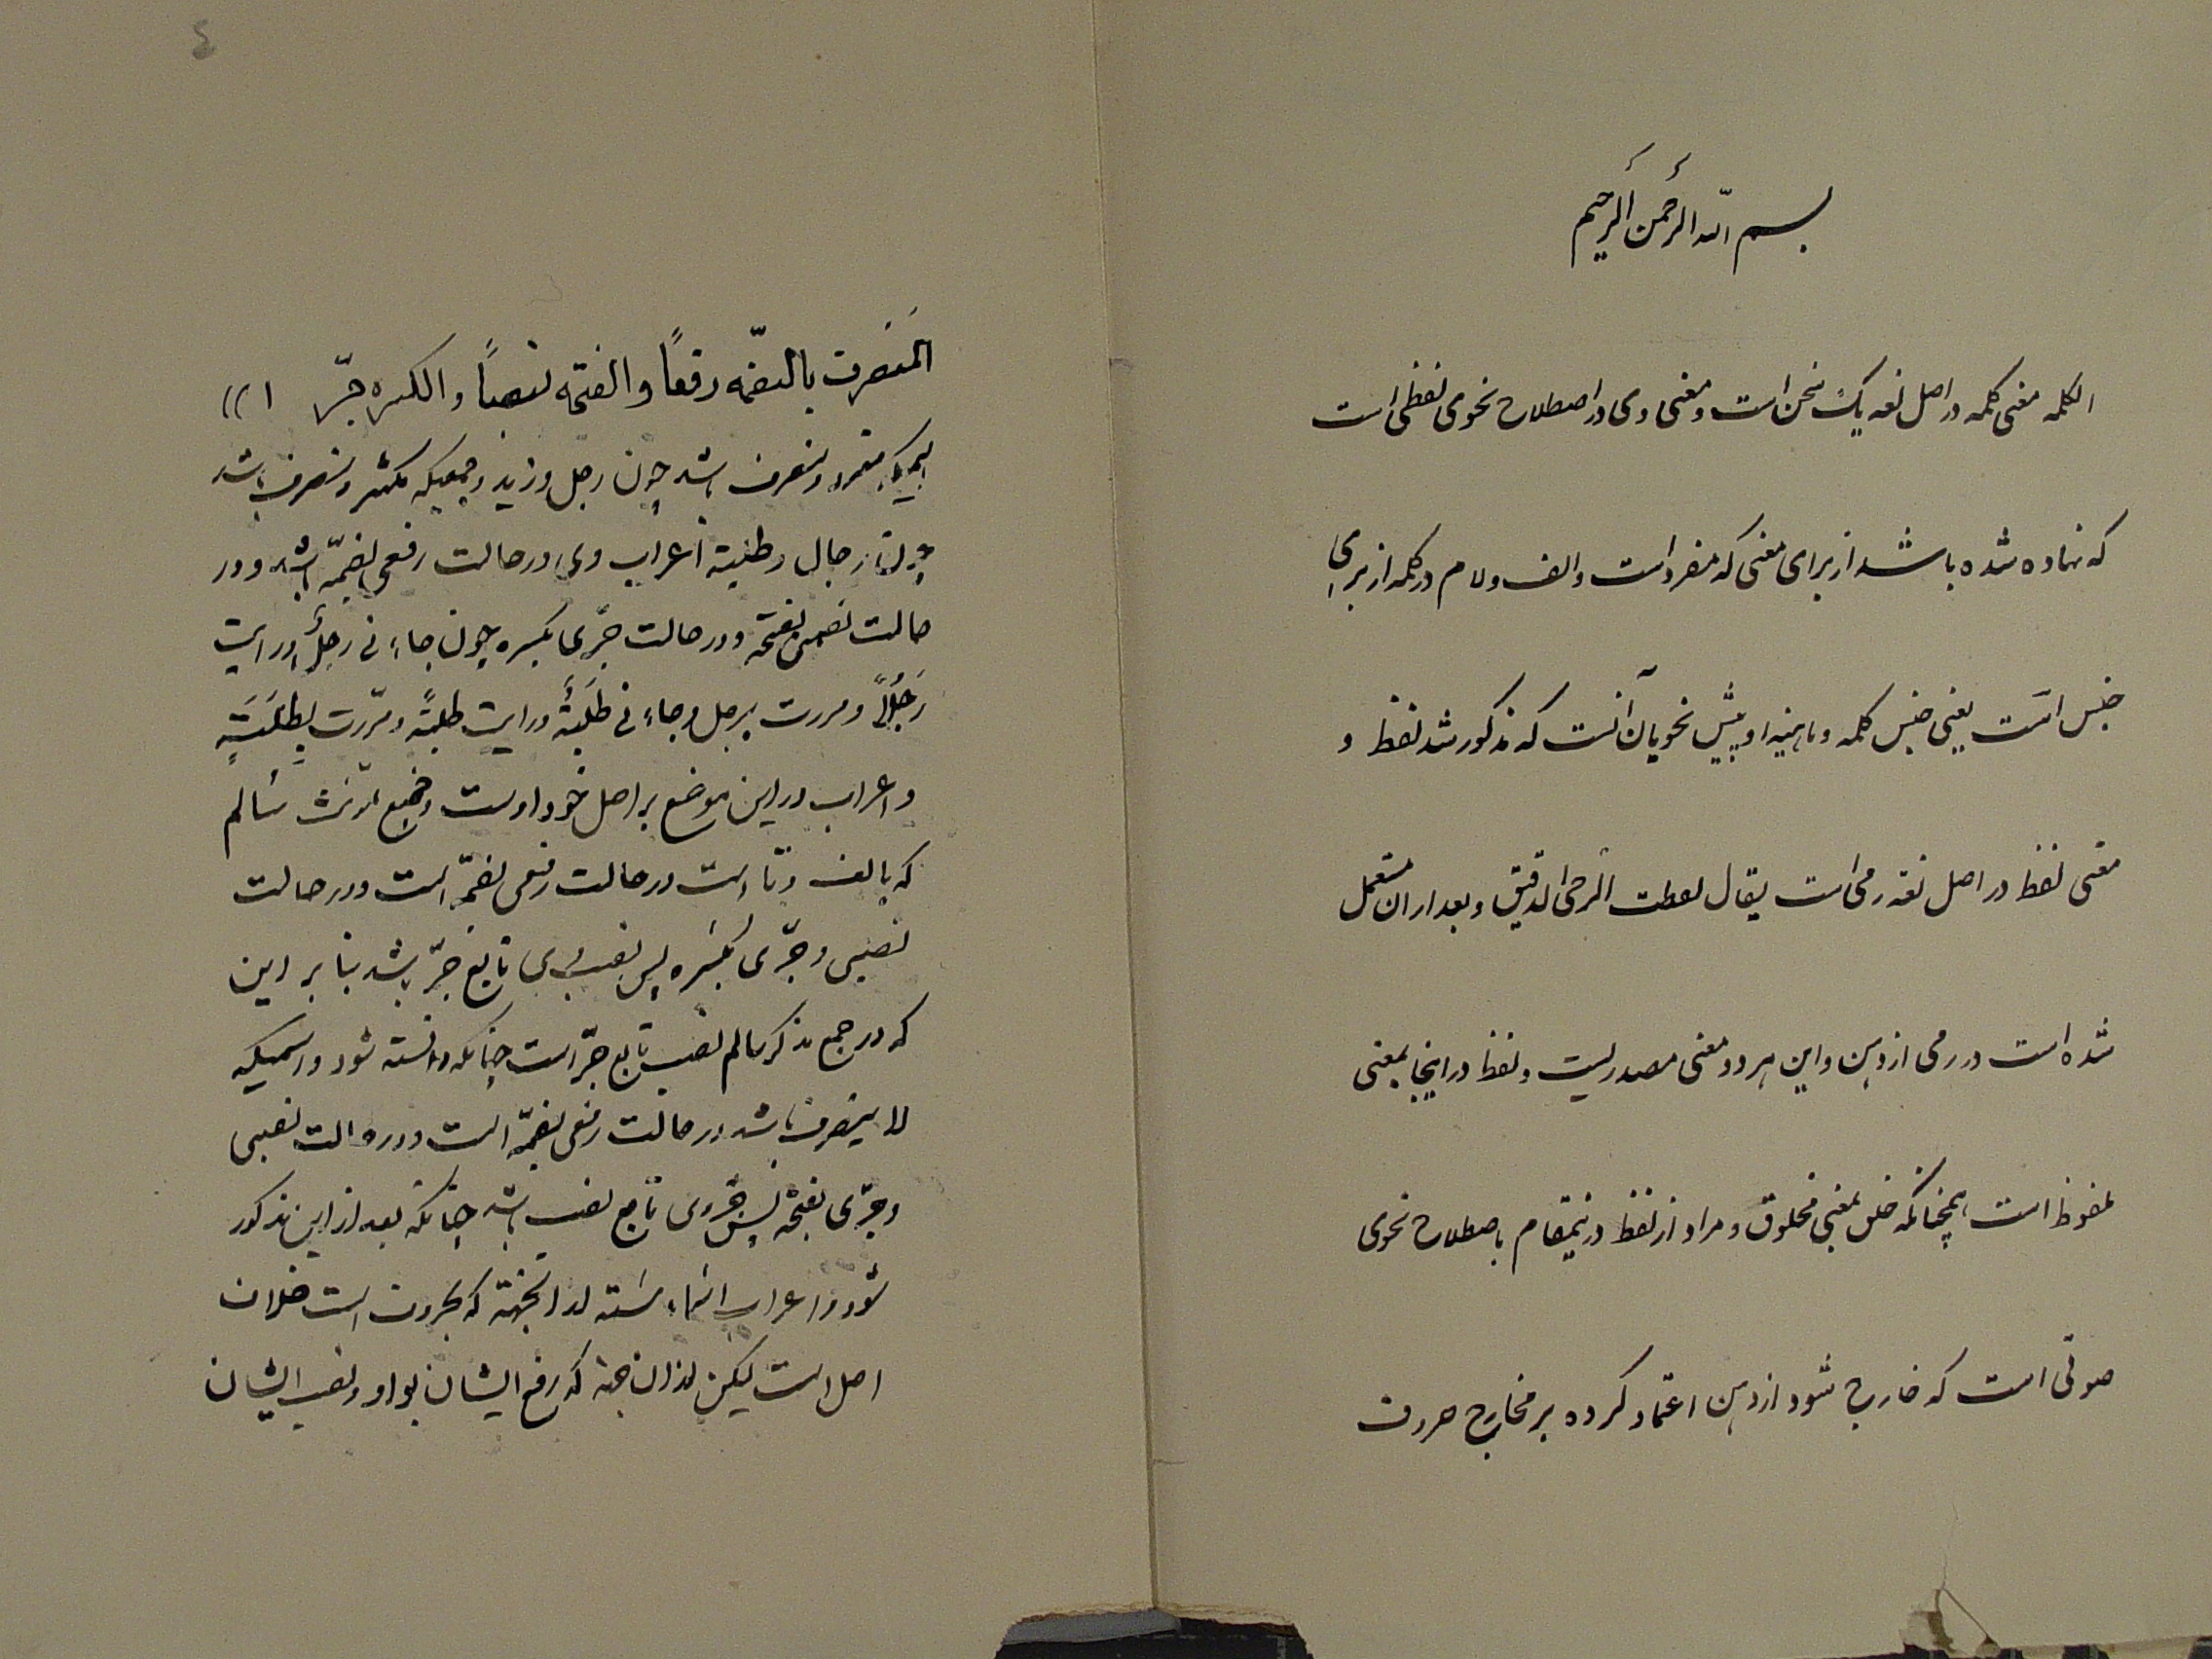 بسم الله الرحمن الرحیم
الکلمه معنی کلمه در اصل لغه یک سخن است و معنی وی در اصطلاح نحوی لفظی است
که نهاده شده باشد از برای معنی که مفرد است و الف و لام در کلمه از برای
جنس است یعنی جنس کلمه و ماهیه او پیش نحویان آنست که مذکور شد لفظ و
معنی لفظ در اصل لغه رمی است یقال لفظت الرحی الدقیق و بعد از ان مستعمل
شده است در رمی از دهن و این هر دو معنی مصدریست و لفظ در اینجا بمعنی
ملفوظ است همچنانکه خلق بمعنی مخلوق و مراد از لفظ در نیمقام باصطلاح نحوی
صوتی است که خارج شود از دهن اعتماد کرده بر مخارج حروف
٤
المنصرف بالضّمه رفعاً و الفتحه نصباً و الکسره جرّ ا ))
اسمیکه مفرد و منصرف باشد چون رجل و زید و جمعیکه مکسّر و منصرف باشد
چون رجال و طلبة اعراب وی در حالت رفعی بضمّه باشد و در
حالت نصبی بفتحه و در حالت جرّی بکسره چون جاءنی رجلٌ و رایت
رَجُلاً و مررت برجل و جاءنی طَلَبَةٌ و رایت طلبةً و مرّرت بِطَلَبَةٍ
و اعراب در این موضع بر اصل خود است و جمع مؤنث سالم
که بالف و تا است در حالت رفعی بضمّه است و در حالت
نصبی و جرّی بکسره پس نصب وی تابع جرّ باشد بنا بر این
که در جمع مذکر سالم نصب تابع جرّ است چنانکه دانسته شود و اسمیکه
لا ینصرف باشد در حالت رفعی بضمّه است و در حالت نصبی
و جرّی بفتحه پس جرّ وی تابع نصب باشد چنانکه بعد از این مذکور
شود و اعراب اسماء سته از انجهة که بحروف است خلاف
اصل است لیکن از ان جهة که رفع ایشان بواو و نصب ایشان